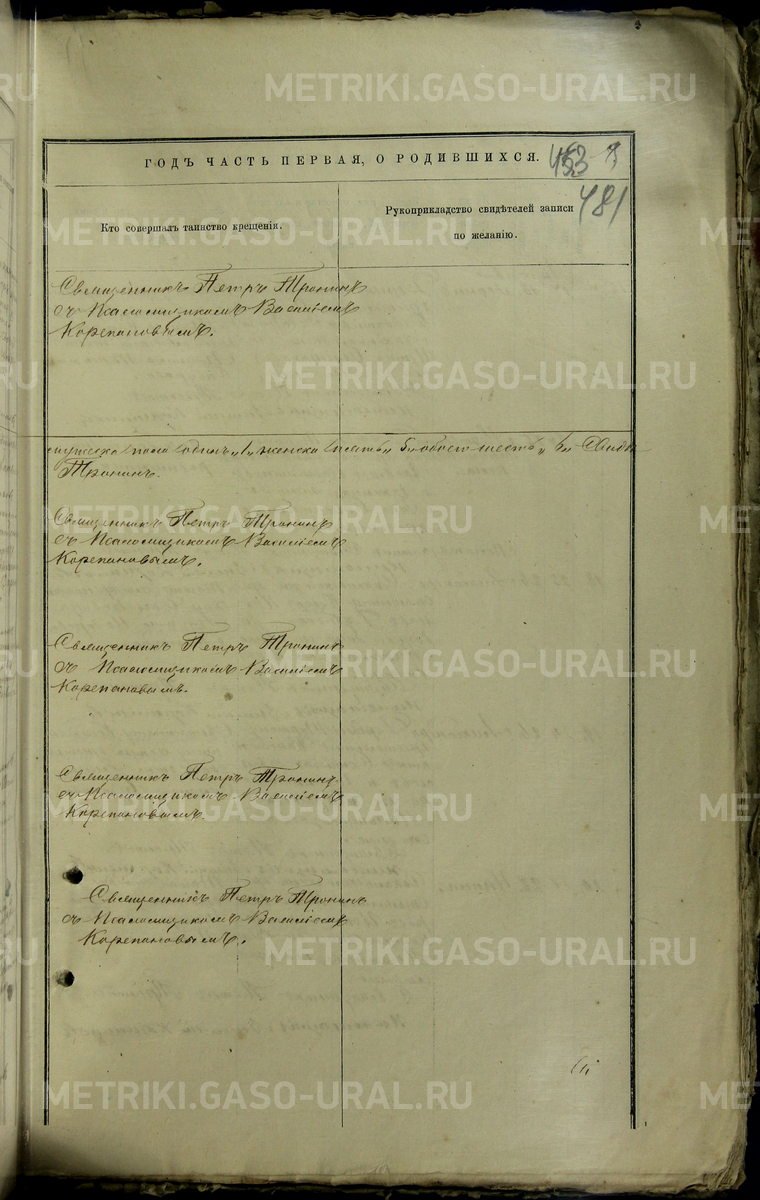 ГОДЪ ЧАСТЬ ПЕРВАЯ, О РОДИВШИХСЯ.
453
481
Кто совершалъ таинство крещенія.
Рукоприкладство свидѣтелей записи
по желанію.
Священникъ Петръ Тронинъ
съ Псаломщикомъ Василіемъ
Корепановымъ.
мужеска пола одинъ „1„ женска пять „5„ обоего шесть „6„
Тронинъ.
Священникъ Петръ Тронинъ
съ Псаломщикомъ Василіемъ
Корепановымъ.
Священникъ Петръ Тронинъ
съ Псаломщикомъ Василіемъ
Корепановымъ.
Священникъ Петръ Тронинъ
съ Псаломщикомъ Василіемъ
Корепановымъ.
Священникъ Петръ Тронинъ
съ Псаломщикомъ Василіемъ
Корепановымъ.
METRIKI.GASO-URAL.RU
METRIKI.GASO-URAL.RU
METRIKI.GASO-URAL.RU
METRIKI.GASO-URAL.RU
METRIKI.GASO-URAL.RU
METRIKI.GASO-URAL.RU
METRIKI.GASO-URAL.RU
METRIKI.GASO-URAL.RU